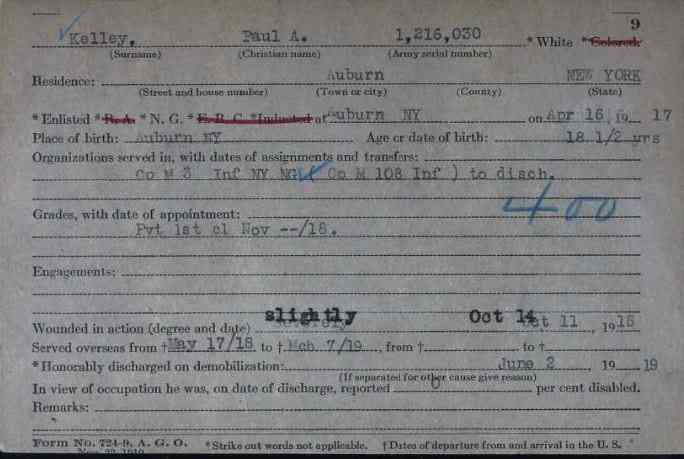 9
Kelley, Paul A. 1,216,030 * White * Colored.
(Surname) (Christian name) (Army serial number)
Residence: Auburn NEW YORK
(Street and house number) (Town or city) (County) (State)
* Enlisted * R. A. * N. G. * E. R. C. * Inducted at Auburn NY on Apr 16, 19 17
Place of birth: Auburn NY Age or date of birth: 18 1/2 yrs
Organizations served in, with dates of assignments and transfers:
Co M 3 Inf NY NG ( Co M 108 Inf ) to disch.
400
Grades, with date of appointment:
Pvt 1st cl Nov --/18.
Engagements:
slightly Oct 14
Wounded in action (degree and date) Oct 11, 1918
Served overseas from † May 17/18 to † Mch 7/19, from † to †
* Honorably discharged on demobilization: June 2 19 19
(If separated for other cause give reason)
In view of occupation he was, on date of discharge, reported 0 per cent disabled.
Remarks:
Form No. 724-9, A. G. O. * Strike out words not applicable. † Dates of departure from and arrival in the U. S.
Nov. 22, 1919